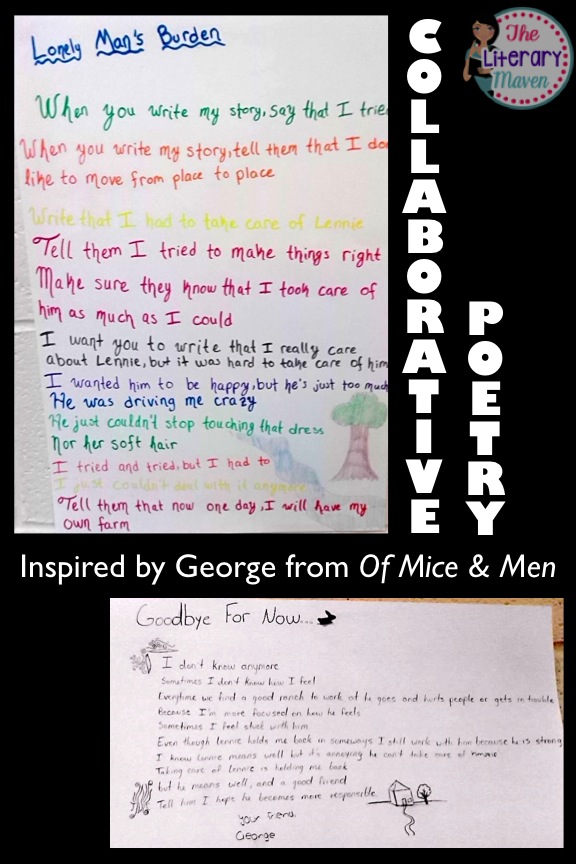 The
Literary
Maven
COLLABORATIVE
POETRY
Lonely Man's Burden
When you write my story, say that I trie
When you write my story, tell them that I do
like to move from place to place
Write that I had to take care of Lennie
Tell them I tried to make things right
Make sure they know that I took care of
him as much as I could
I want you to write that I really care
about Lennie, but it was hard to take care of him
I wanted him to be happy, but he's just too much
He was driving me crazy
He just couldn't stop touching that dress
Nor her soft hair
I tried and tried, but I had to
I just couldn't deal with it anymore
Tell them that now one day, I will have my
own farm
Inspired by George from Of Mice & Men
Goodbye For Now...
I don't know anymore
Sometimes I don't know how I feel
Everytime we find a good ranch to work at he goes and hurts people or gets in trouble
Because I'm more focused on how he feels
Sometimes I feel stuck with him
Even though Lennie holds me back in someways I still work with him because he is strong
I know Lennie means well but it's annoying he can't take care of
Taking care of Lennie is holding me back
but he means well, and a good friend
Tell him I hope he becomes more responsible
your friend,
George